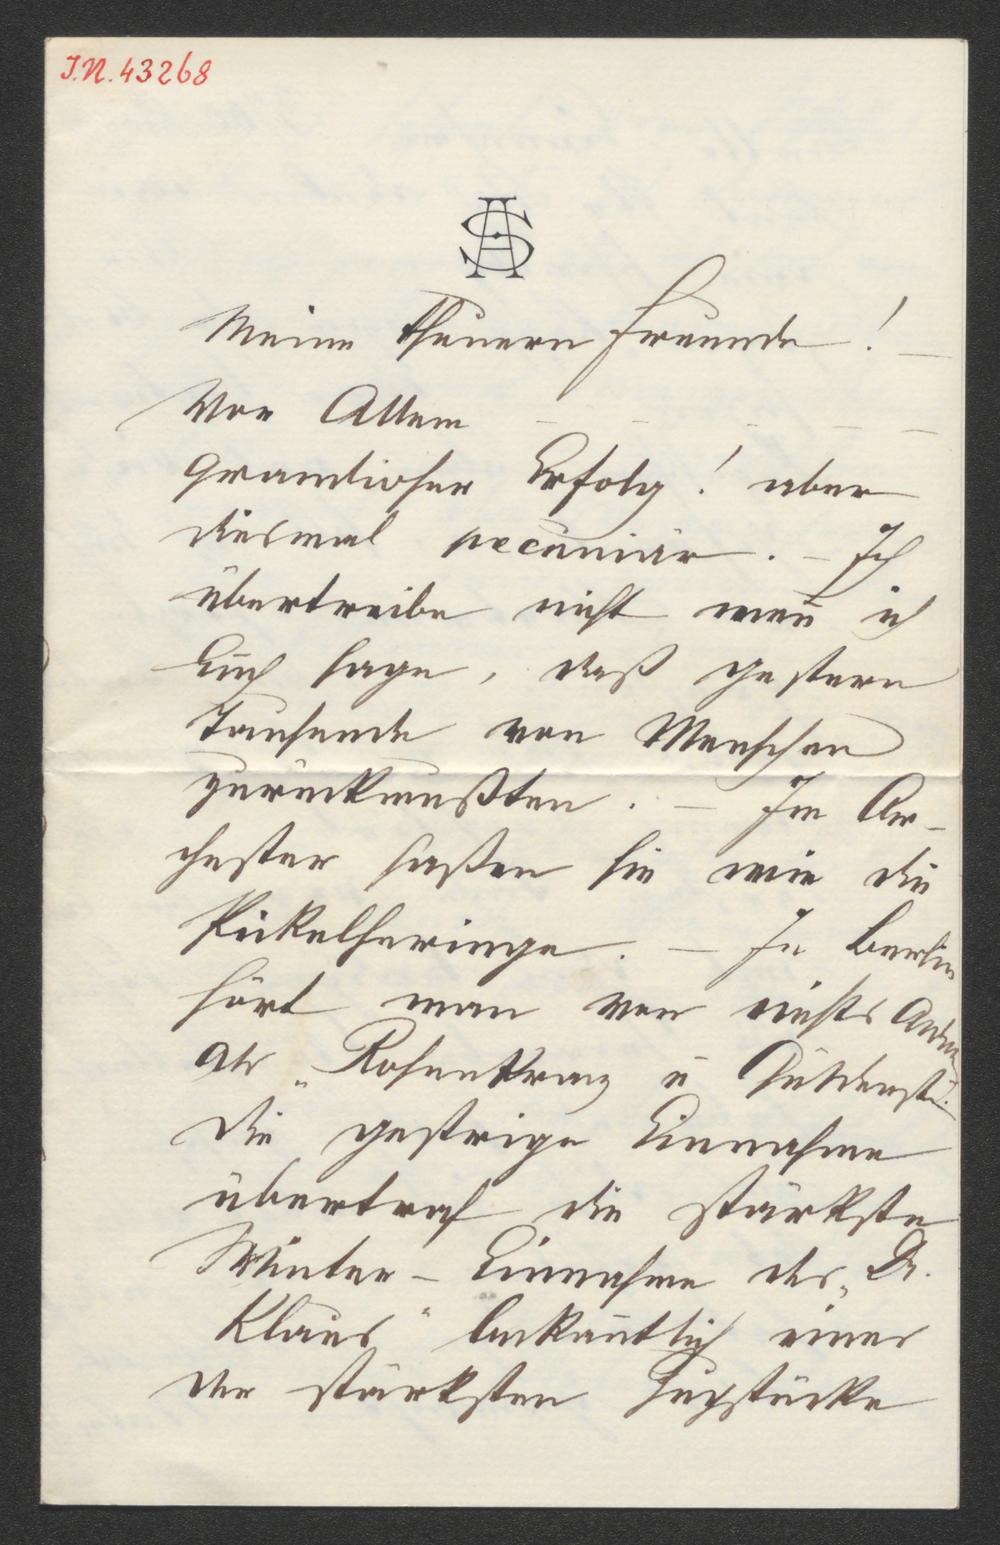 J.N. 43268
AS
Meine theuern Freunde! —
Vor Allem — — — — —
grandioser Erfolg! aber
diesmal pecuniär. — Ich
übertreibe nicht wen̄ ich
Euch sage, daß gestern
Tausende von Menschen
zurückmußten. — Im Or-
chester saßen sie wie die
Pickelheringe. — In Berlin
hört man von nichts Andern
als „Rosenkranz u Güldenst.
die gestrige Einnahme
übertraf die stärkste
Winter-Einnahme des „Dr.
Klaus" bekan̄tlich eines
der stärksten Zugstücke